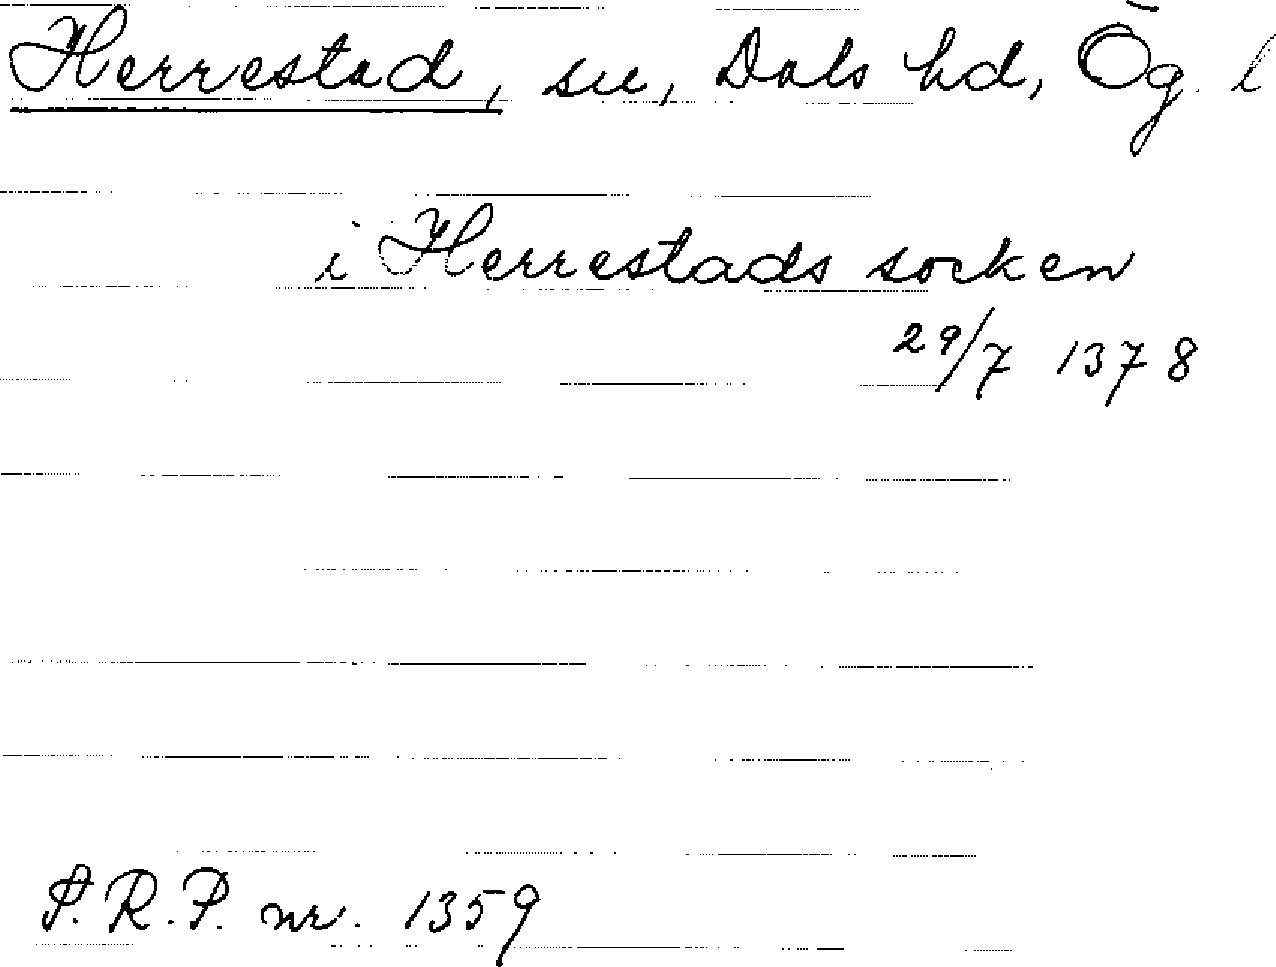 Herrestad, sn, Dals hd, Ög. l
i Herrestads socken
29/7 1378
P.R.P. nr. 1359